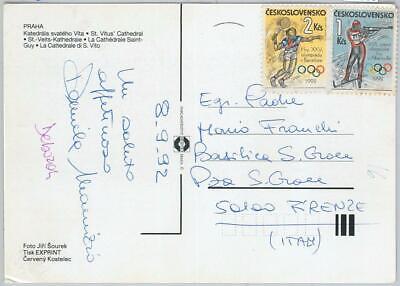 PRAHA
Katedrála svatého Víta · St. Vitus' Cathedral
· St.-Veits-Kathedrale · La Cathédrale Saint-
Guy · La Cattedrale di S. Vito
Un saluto
affettuoso
Daniela Maurizio
Deborah
8.9.92
Foto Jiří Šourek
Tisk EXPRINT
Červený Kostelec
ČESKOSLOVENSKO
2 Kčs
Hry XXV.
olympiády
v Barceloně
1992
ČESKOSLOVENSKO
1 Kčs
1992
Egr. Padre
Mario Franchi
Basilica S. Croce
P.za S. Croce
50100 FIRENZE
(ITALY)